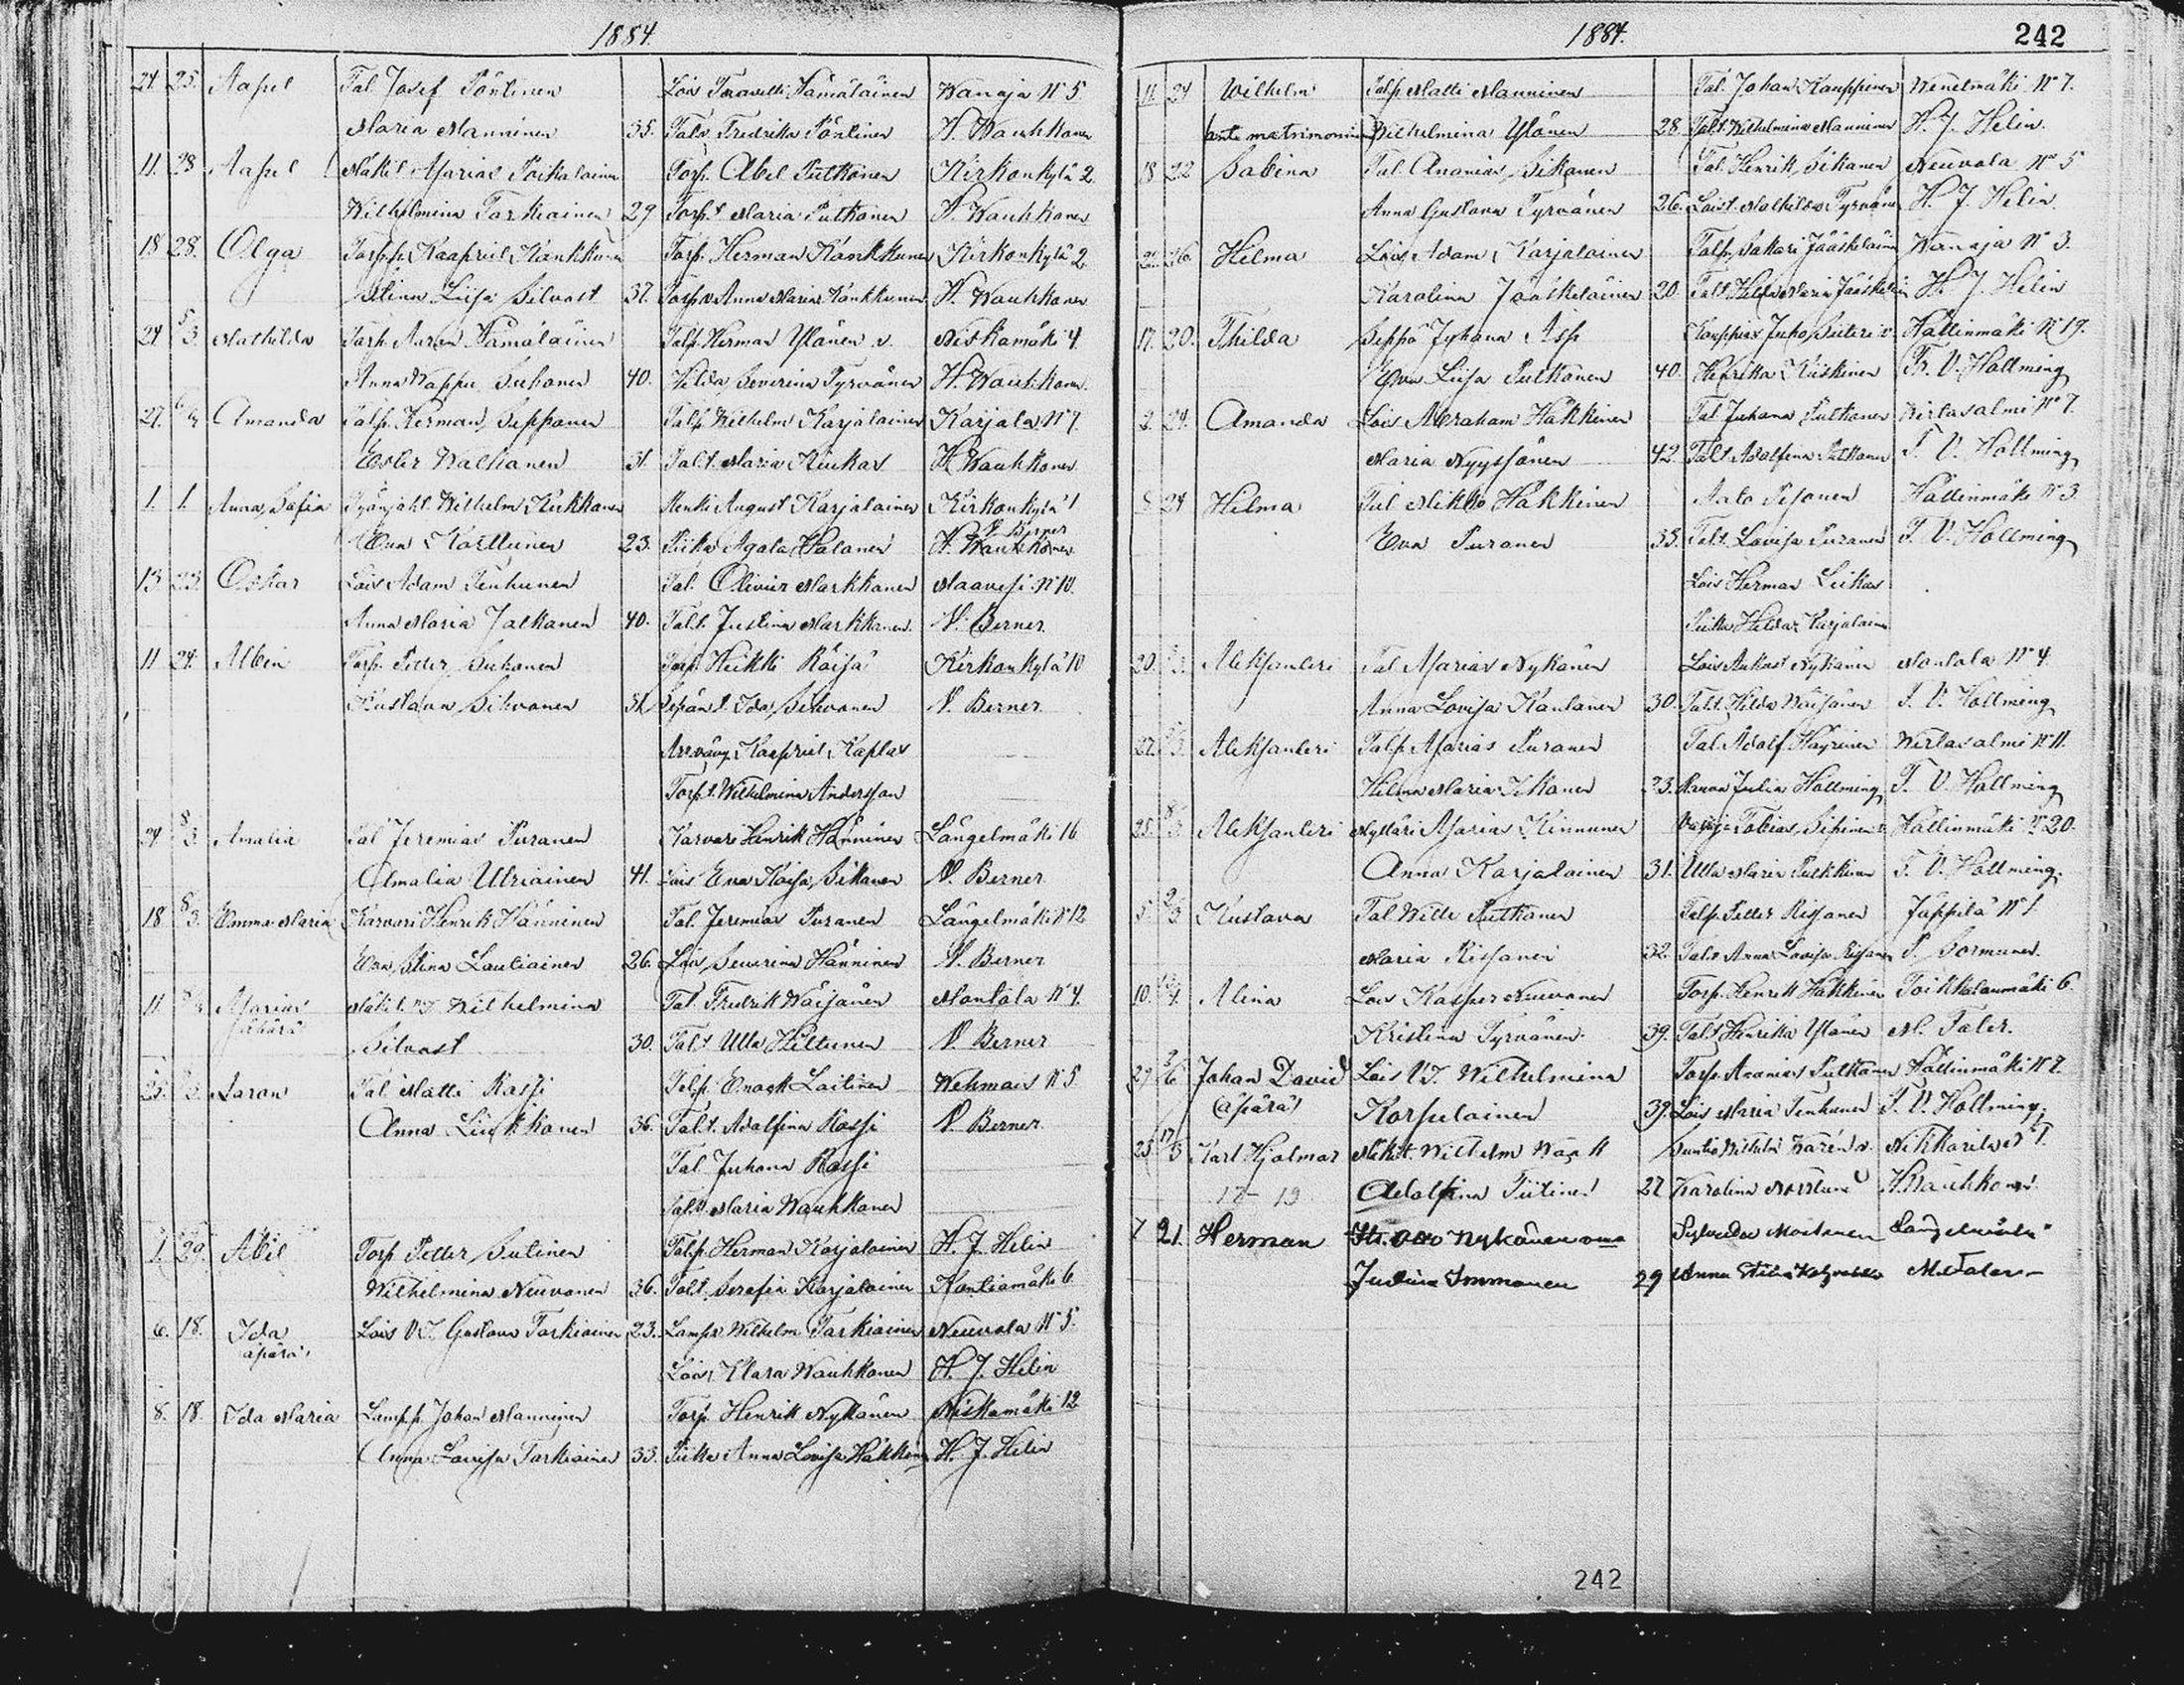 1884.
24. 25. Aapel Tal. Josef Pöntinen Lois Taavetti Hämäläinen Wanaja N:o 5
Maria Manninen 35. Talv. Fredrika Pöntinen H. Wauhkonen
11. 28 Aapel Mäkit. Asarias Poikalainen Torp. Abel Putkonen Kirkonkylä 2.
Wilhelmina Tarkiainen 29 Torp.t. Maria Putkonen H. Wauhkonen
18 28. Olga Torp.p. Kaapriel Kankkunen Torp. Herman Kankkunen Kirkonkylä 2
Stina Liisa Silvast 37. Torp.v. Anna Maria Kankkunen H. Wauhkonen
24 5/3. Mathilda Torp. Aaron Hämäläinen Talp. Herman Ylönen v. Niskamäki 4.
Anna Wappu Suhonen 40. Hilda Severina Tyrvänen H. Wauhkonen
27. Amanda Talp. Herman Seppänen Talp. Wilhelm Karjalainen Karjala N:o 7.
Ester Walkonen 31. Tal.t. Maria Kiukas H. Wauhkonen
1. 1. Anna Sofia Wilhelm Kukkonen Renki August Karjalainen Kirkonkylä 1
Eva Karttunen 23. Piika Agata Halonen H. Wauhkonen
N. Berner
13. 23. Oskar Lois Adam Tenhunen Tal. Olivier Markkanen Maavesi N:o 10.
Anna Maria Jalkanen 40. Tal.t. Justina Markkanen N. Berner
11 24. Albin Torp. Petter Suhonen Torp. Heikki Räisä Kirkonkylä 10
Kustava Sihvonen 31. Sepän t. Ida Sihvonen N. Berner
Kaapriel Kaplas
Torp.t. Wilhelmina Andersson
24 8/3. Amalia Tal Jeremias Puranen Karvari Henrik Hänninen Längelmäki 16
Amalia Utriainen 41. Lois Eva Kaisa Sikanen N. Berner
18 8/3. Emma Maria Karvari Henrik Hänninen Tal. Jeremias Puranen Längelmäki N:o 12
Eva Stina Lautiainen 26. Lois Severina Hänninen N. Berner
11 Asarias Mäkit. Wilhelmina Tal. Fredrik Wäisänen Montola N:o 4.
äpärä Silvast 30. Tal.t. Ulla Hiltunen N. Berner
25. Aaron Tal. Matti Rassi Talp. Enock Laitinen Wehmais N:o 5.
Anna Liukkonen 36. Tal.t. Adolfina Rassi N. Berner
Tal Juhana Rassi
Tal.t. Maria Wauhkonen
1. 29. Abel Torp. Petter Sutinen Talp. Herman Karjalainen H. J. Helin
Wilhelmina Neuvonen 36. Tal.t. Serafia Karjalainen Kontiomäki 6
6. 18. Ida Lois Gustava Tarkiainen 23. Lamp.v Wilhelm Tarkiainen Neuvola N:o 5.
äpärä Lois Klara Wauhkonen H. J. Helin
8. 18. Ida Maria Lamp.p. Johan Manninen Torp. Henrik Nykänen Niskamäki 12
Anna Lovisa Tarkiainen 33. Piika Anna Lovisa Häkkinen H. J. Helin
1884.
242
11. 24 Wilhelm Talp. Matti Manninen Tal. Johan Kauppinen Wenetmäki N:o 7.
(ante matrimonium) Wilhelmina Ylönen 28. Tal.t. Wilhelmina Manninen H. J. Helin.
18 22 Sabina Tal. Ananias Sikanen Tal. Henrik Sikanen Neuvola N:o 5
Anna Gustava Tyrvänen 26. Lois t. Mathilda Tyrvänen H. J. Helin.
26 Helma Lois Adam Karjalainen Talp. Sakari Jääskeläinen Wanaja N:o 3.
Karolina Jääskeläinen 20. Tal.t. Hilda Maria Jääskeläinen H. J. Helin
17. 20. Thilda Seppä Juhana Asp Kauppias Juho Suteri v. Hällinmäki N:o 19.
Eva Liisa Putkonen 40. Henrika Kiiskinen T. V. Hollming
2. 24. Amanda Lois Abraham Häkkinen Tal. Juhana Putkonen Wirtasalmi N:o 7.
Maria Nyyssönen 42. Tal.t. Adolfina Putkonen T. V. Hollming
5 24 Hilma Tal Mikko Häkkinen Aato Pesonen Hällinmäki N:o 3.
Eva Puranen 35. Tal.t. Lovisa Puranen T. V. Hollming
Lois Herman Leikas
Piika Hilda Karjalainen
20. Aleksanteri Tal Asarias Nykänen Lois August Nykänen Montola N:o 4.
Anna Lovisa Kautanen 30. Tal.t. Hilda Wäisänen T. V. Hollming
27. Aleksanteri Talp. Asarias Puranen Tal. Adolf Häyrinen Wirtasalmi N:o 11.
Hilma Maria Ikonen 23. Rouva Julia Hollming T. V. Hollming
25. Aleksanteri Mylläri Asarias Kinnunen Tobias Sipinen v. Hällinmäki N:o 20.
Anna Karjalainen 31. Ulla Maria Pulkkinen T. V. Hollming.
5. 9/3 Kustava Tal. Wille Putkonen Talp. Petter Rissanen Jäppilä N:o 1.
Maria Rissanen 32. Tal.v. Anna Lovisa Rissanen P. Sormunen.
10. Alina Lois Kasper Neuvonen Torp. Henrik Häkkinen Poikkalanmäki 6.
Kristina Tyrvänen 39. Tal.t Henrika Ylönen M. Taler.
29 2/6 Johan David Lois Wilhelmina Torp. Ananias Putkonen Hällinmäki N:o 7.
(äpärä) Korpelainen 39. Lois Maria Tenhunen T. V. Hollming.
25 17/5 Karl Hjalmar Mäkit. Wilhelm Suntio Wilhelm Nikkarila N:o 1.
17-19 Adolfina Piitinen 27 Karolina H. Wauhkonen
7 21. Herman Nykänen Sylvander Längelmäki
Justina Immonen 29 Anna Stina M. Taler
242